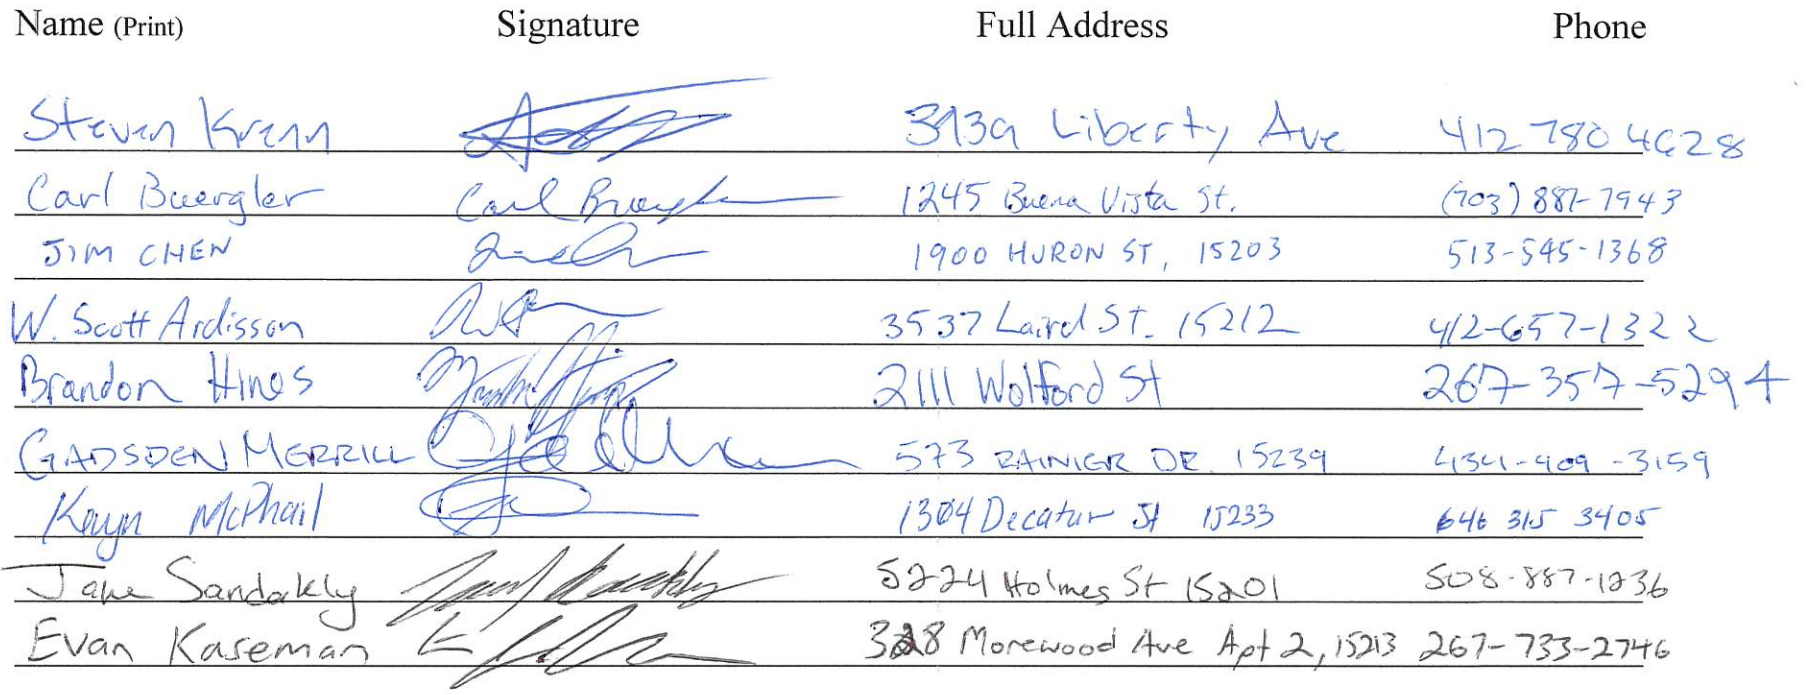 Name (Print) Signature Full Address Phone
Steven Krenn 3939 Liberty Ave 412 780 4628
Carl Buergler Carl Buergler 1245 Buena Vista St. (703) 887-7943
JIM CHEN 1900 HURON ST, 15203 513-545-1368
W. Scott Ardisson 3537 Laird St. 15212 412-657-1322
Brandon Hines 2111 Wolford St 267-357-5294
GADSDEN MERRILL 573 RAINIER DR. 15239 434-409-3159
McPhail 1304 Decatur St 15233 646 315 3405
Jake Sandakly 5224 Holmes St 15201 508-887-1236
Evan Kaseman 328 Morewood Ave Apt 2, 15213 267-733-2746